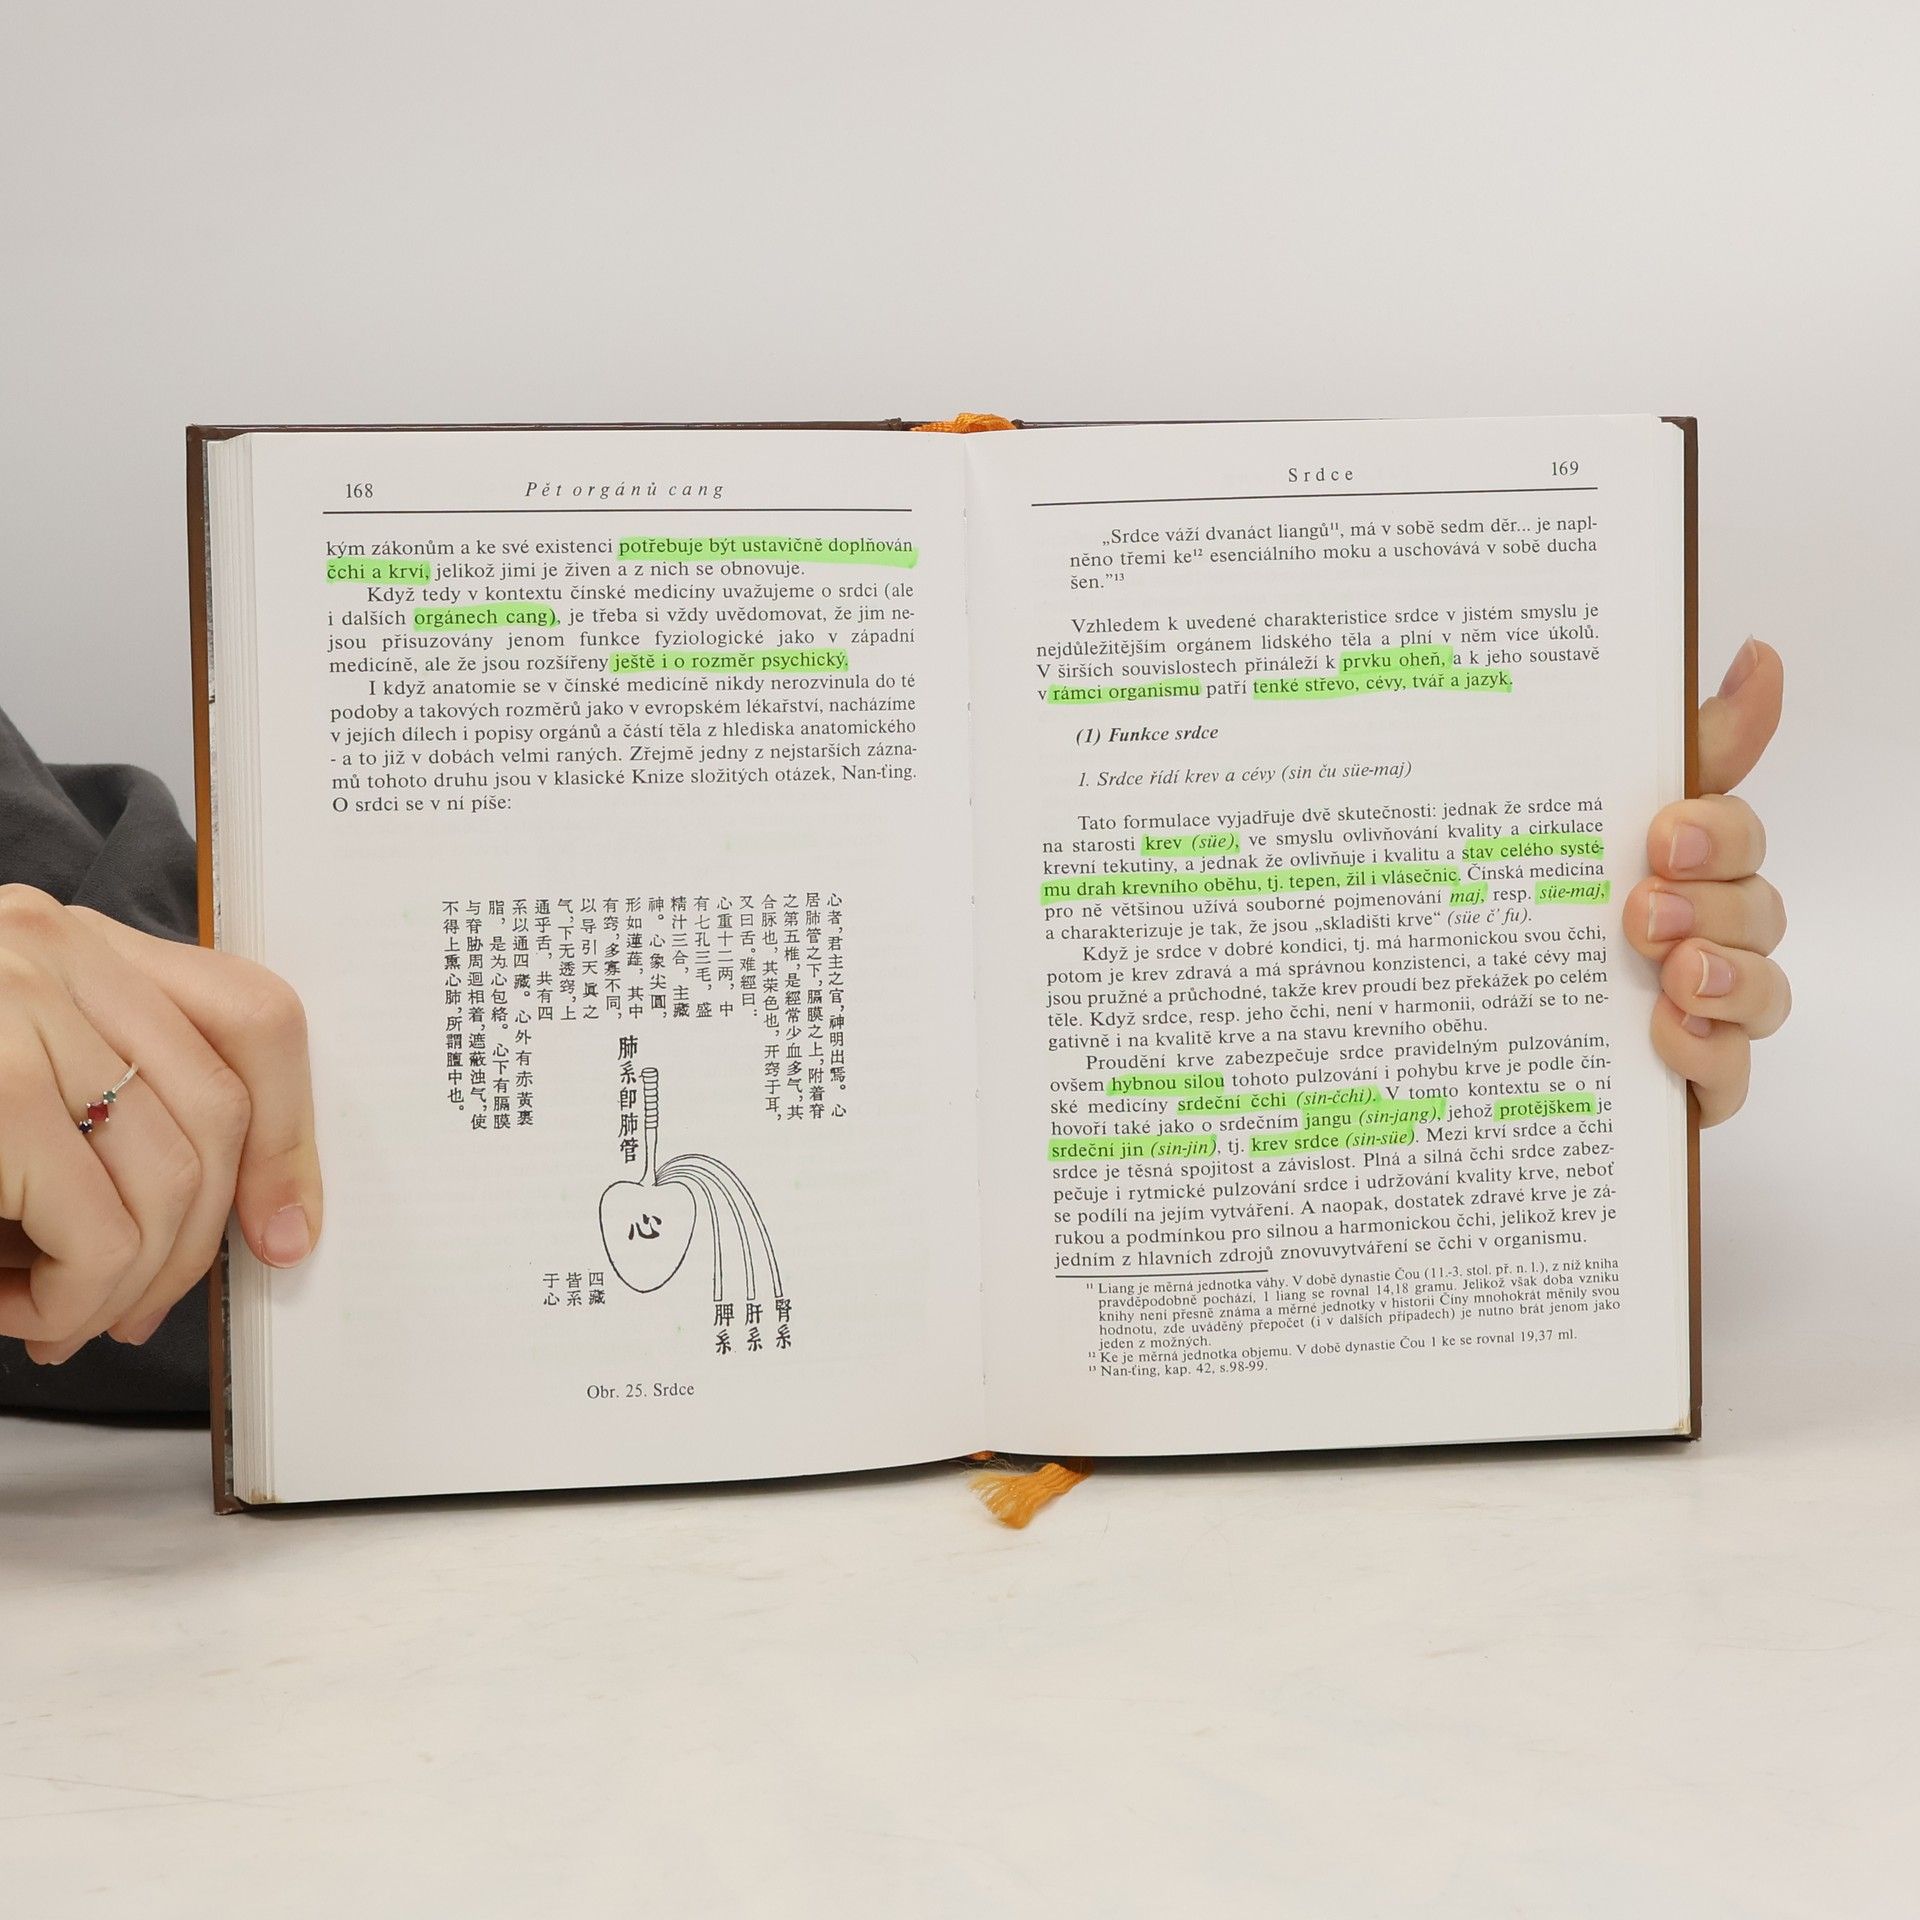 168
Pět orgánů cang
kým zákonům a ke své existenci potřebuje být ustavičně doplňován
čchi a krví, jelikož jimi je živen a z nich se obnovuje.
Když tedy v kontextu čínské medicíny uvažujeme o srdci (ale
i dalších orgánech cang), je třeba si vždy uvědomovat, že jim ne-
jsou přisuzovány jenom funkce fyziologické jako v západní
medicíně, ale že jsou rozšířeny ještě i o rozměr psychický.
I když anatomie se v čínské medicíně nikdy nerozvinula do té
podoby a takových rozměrů jako v evropském lékařství, nacházíme
v jejích dílech i popisy orgánů a částí těla z hlediska anatomického
- a to již v dobách velmi raných. Zřejmě jedny z nejstarších zázna-
mů tohoto druhu jsou v klasické Knize složitých otázek, Nan-ťing.
O srdci se v ní píše:
心者，君主之官，神明出焉。心
居肺管之下，膈膜之上，附着脊
之第五椎，是經常少血多气，其
合脉也，其荣色也，开窍于耳，
又曰舌。难經曰：
心重十二两，中
有七孔三毛，盛
精汁三合，主藏
神。心象尖圓，
形如蓮蕋，其中
有窍，多寡不同，
以导引天眞之
气，下无透窍，上
通乎舌，共有四
系以通四藏。心外有赤黃裹
脂，是为心包絡。心下有膈膜
与脊胁周迴相着，遮蔽浊气，使
不得上熏心肺，所謂膻中也。
肺系卽肺管
心
四藏
皆系
于心
脾系
肝系
腎系
Obr. 25. Srdce
Srdce
169
„Srdce váží dvanáct liangů¹¹, má v sobě sedm děr... je napl-
něno třemi ke¹² esenciálního moku a uschovává v sobě ducha
šen.”¹³
Vzhledem k uvedené charakteristice srdce v jistém smyslu je
nejdůležitějším orgánem lidského těla a plní v něm více úkolů.
V širších souvislostech přináleží k prvku oheň, a k jeho soustavě
v rámci organismu patří tenké střevo, cévy, tvář a jazyk.
(1) Funkce srdce
1. Srdce řídí krev a cévy (sin ču süe-maj)
Tato formulace vyjadřuje dvě skutečnosti: jednak že srdce má
na starosti krev (süe), ve smyslu ovlivňování kvality a cirkulace
krevní tekutiny, a jednak že ovlivňuje i kvalitu a stav celého systé-
mu drah krevního oběhu, tj. tepen, žil i vlásečnic. Čínská medicína
pro ně většinou užívá souborné pojmenování maj, resp. süe-maj,
a charakterizuje je tak, že jsou „skladišti krve“ (süe č’ fu).
Když je srdce v dobré kondici, tj. má harmonickou svou čchi,
potom je krev zdravá a má správnou konzistenci, a také cévy maj
jsou pružné a průchodné, takže krev proudí bez překážek po celém
těle. Když srdce, resp. jeho čchi, není v harmonii, odráží se to ne-
gativně i na kvalitě krve a na stavu krevního oběhu.
Proudění krve zabezpečuje srdce pravidelným pulzováním,
ovšem hybnou silou tohoto pulzování i pohybu krve je podle čín-
ské medicíny srdeční čchi (sin-čchi). V tomto kontextu se o ní
hovoří také jako o srdečním jangu (sin-jang), jehož protějškem je
srdeční jin (sin-jin), tj. krev srdce (sin-süe). Mezi krví srdce a čchi
srdce je těsná spojitost a závislost. Plná a silná čchi srdce zabez-
pečuje i rytmické pulzování srdce i udržování kvality krve, neboť
se podílí na jejím vytváření. A naopak, dostatek zdravé krve je zá-
rukou a podmínkou pro silnou a harmonickou čchi, jelikož krev je
jedním z hlavních zdrojů znovuvytváření se čchi v organismu.
¹¹ Liang je měrná jednotka váhy. V době dynastie Čou (11.-3. stol. př. n. l.), z níž kniha
pravděpodobně pochází, 1 liang se rovnal 14,18 gramu. Jelikož však doba vzniku
knihy není přesně známa a měrné jednotky v historii Číny mnohokrát měnily svou
hodnotu, zde uváděný přepočet (i v dalších případech) je nutno brát jenom jako
jeden z možných.
¹² Ke je měrná jednotka objemu. V době dynastie Čou 1 ke se rovnal 19,37 ml.
¹³ Nan-ťing, kap. 42, s.98-99.